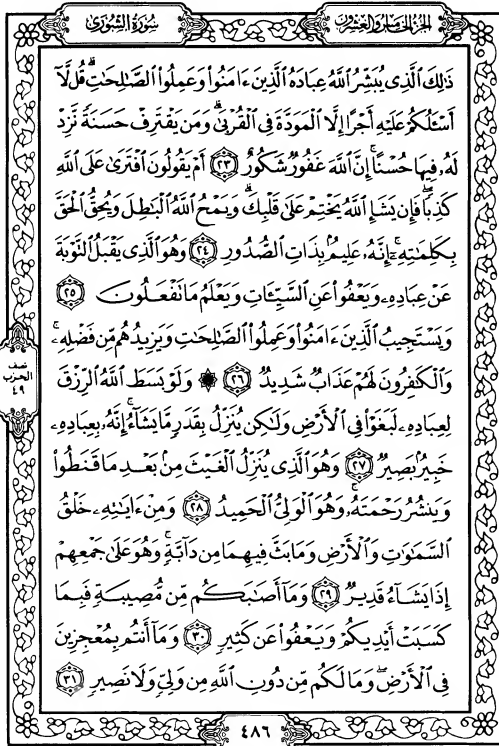 الجزء الخامس والعشرون
سورة الشورى
ذَٰلِكَ ٱلَّذِى يُبَشِّرُ ٱللَّهُ عِبَادَهُ ٱلَّذِينَ ءَامَنُوا۟ وَعَمِلُوا۟ ٱلصَّـٰلِحَـٰتِ ۗ قُل لَّآ
أَسْـَٔلُكُمْ عَلَيْهِ أَجْرًا إِلَّا ٱلْمَوَدَّةَ فِى ٱلْقُرْبَىٰ ۗ وَمَن يَقْتَرِفْ حَسَنَةً نَّزِدْ
لَهُۥ فِيهَا حُسْنًا ۚ إِنَّ ٱللَّهَ غَفُورٌ شَكُورٌ ﴿٢٣﴾ أَمْ يَقُولُونَ ٱفْتَرَىٰ عَلَى ٱللَّهِ
كَذِبًا ۖ فَإِن يَشَإِ ٱللَّهُ يَخْتِمْ عَلَىٰ قَلْبِكَ ۗ وَيَمْحُ ٱللَّهُ ٱلْبَـٰطِلَ وَيُحِقُّ ٱلْحَقَّ
بِكَلِمَـٰتِهِۦٓ ۚ إِنَّهُۥ عَلِيمٌۢ بِذَاتِ ٱلصُّدُورِ ﴿٢٤﴾ وَهُوَ ٱلَّذِى يَقْبَلُ ٱلتَّوْبَةَ
عَنْ عِبَادِهِۦ وَيَعْفُوا۟ عَنِ ٱلسَّيِّـَٔاتِ وَيَعْلَمُ مَا تَفْعَلُونَ ﴿٢٥﴾
وَيَسْتَجِيبُ ٱلَّذِينَ ءَامَنُوا۟ وَعَمِلُوا۟ ٱلصَّـٰلِحَـٰتِ وَيَزِيدُهُم مِّن فَضْلِهِۦ ۚ
وَٱلْكَـٰفِرُونَ لَهُمْ عَذَابٌ شَدِيدٌ ﴿٢٦﴾ ۞ وَلَوْ بَسَطَ ٱللَّهُ ٱلرِّزْقَ
لِعِبَادِهِۦ لَبَغَوْا۟ فِى ٱلْأَرْضِ وَلَـٰكِن يُنَزِّلُ بِقَدَرٍ مَّا يَشَآءُ ۚ إِنَّهُۥ بِعِبَادِهِۦ
خَبِيرٌۢ بَصِيرٌ ﴿٢٧﴾ وَهُوَ ٱلَّذِى يُنَزِّلُ ٱلْغَيْثَ مِنۢ بَعْدِ مَا قَنَطُوا۟
وَيَنشُرُ رَحْمَتَهُۥ ۚ وَهُوَ ٱلْوَلِىُّ ٱلْحَمِيدُ ﴿٢٨﴾ وَمِنْ ءَايَـٰتِهِۦ خَلْقُ
ٱلسَّمَـٰوَٰتِ وَٱلْأَرْضِ وَمَا بَثَّ فِيهِمَا مِن دَآبَّةٍ ۚ وَهُوَ عَلَىٰ جَمْعِهِمْ
إِذَا يَشَآءُ قَدِيرٌ ﴿٢٩﴾ وَمَآ أَصَـٰبَكُم مِّن مُّصِيبَةٍ فَبِمَا
كَسَبَتْ أَيْدِيكُمْ وَيَعْفُوا۟ عَن كَثِيرٍ ﴿٣٠﴾ وَمَآ أَنتُم بِمُعْجِزِينَ
فِى ٱلْأَرْضِ ۖ وَمَا لَكُم مِّن دُونِ ٱللَّهِ مِن وَلِىٍّ وَلَا نَصِيرٍ ﴿٣١﴾
نصف
الحزب
٤٩
٤٨٦